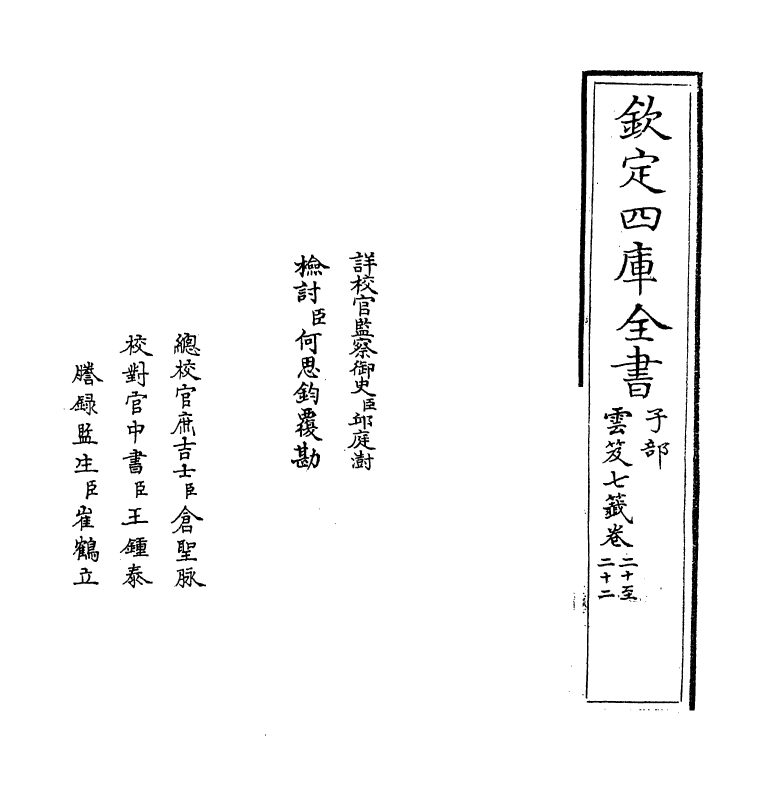 欽定四庫全書
子部
雲笈七籤卷二十至二十二
詳校官監察御史臣邱庭澍
檢討臣何思鈞覆勘
總校官庶吉士臣倉聖脉
校對官中書臣王鍾泰
謄録監生臣崔鶴立